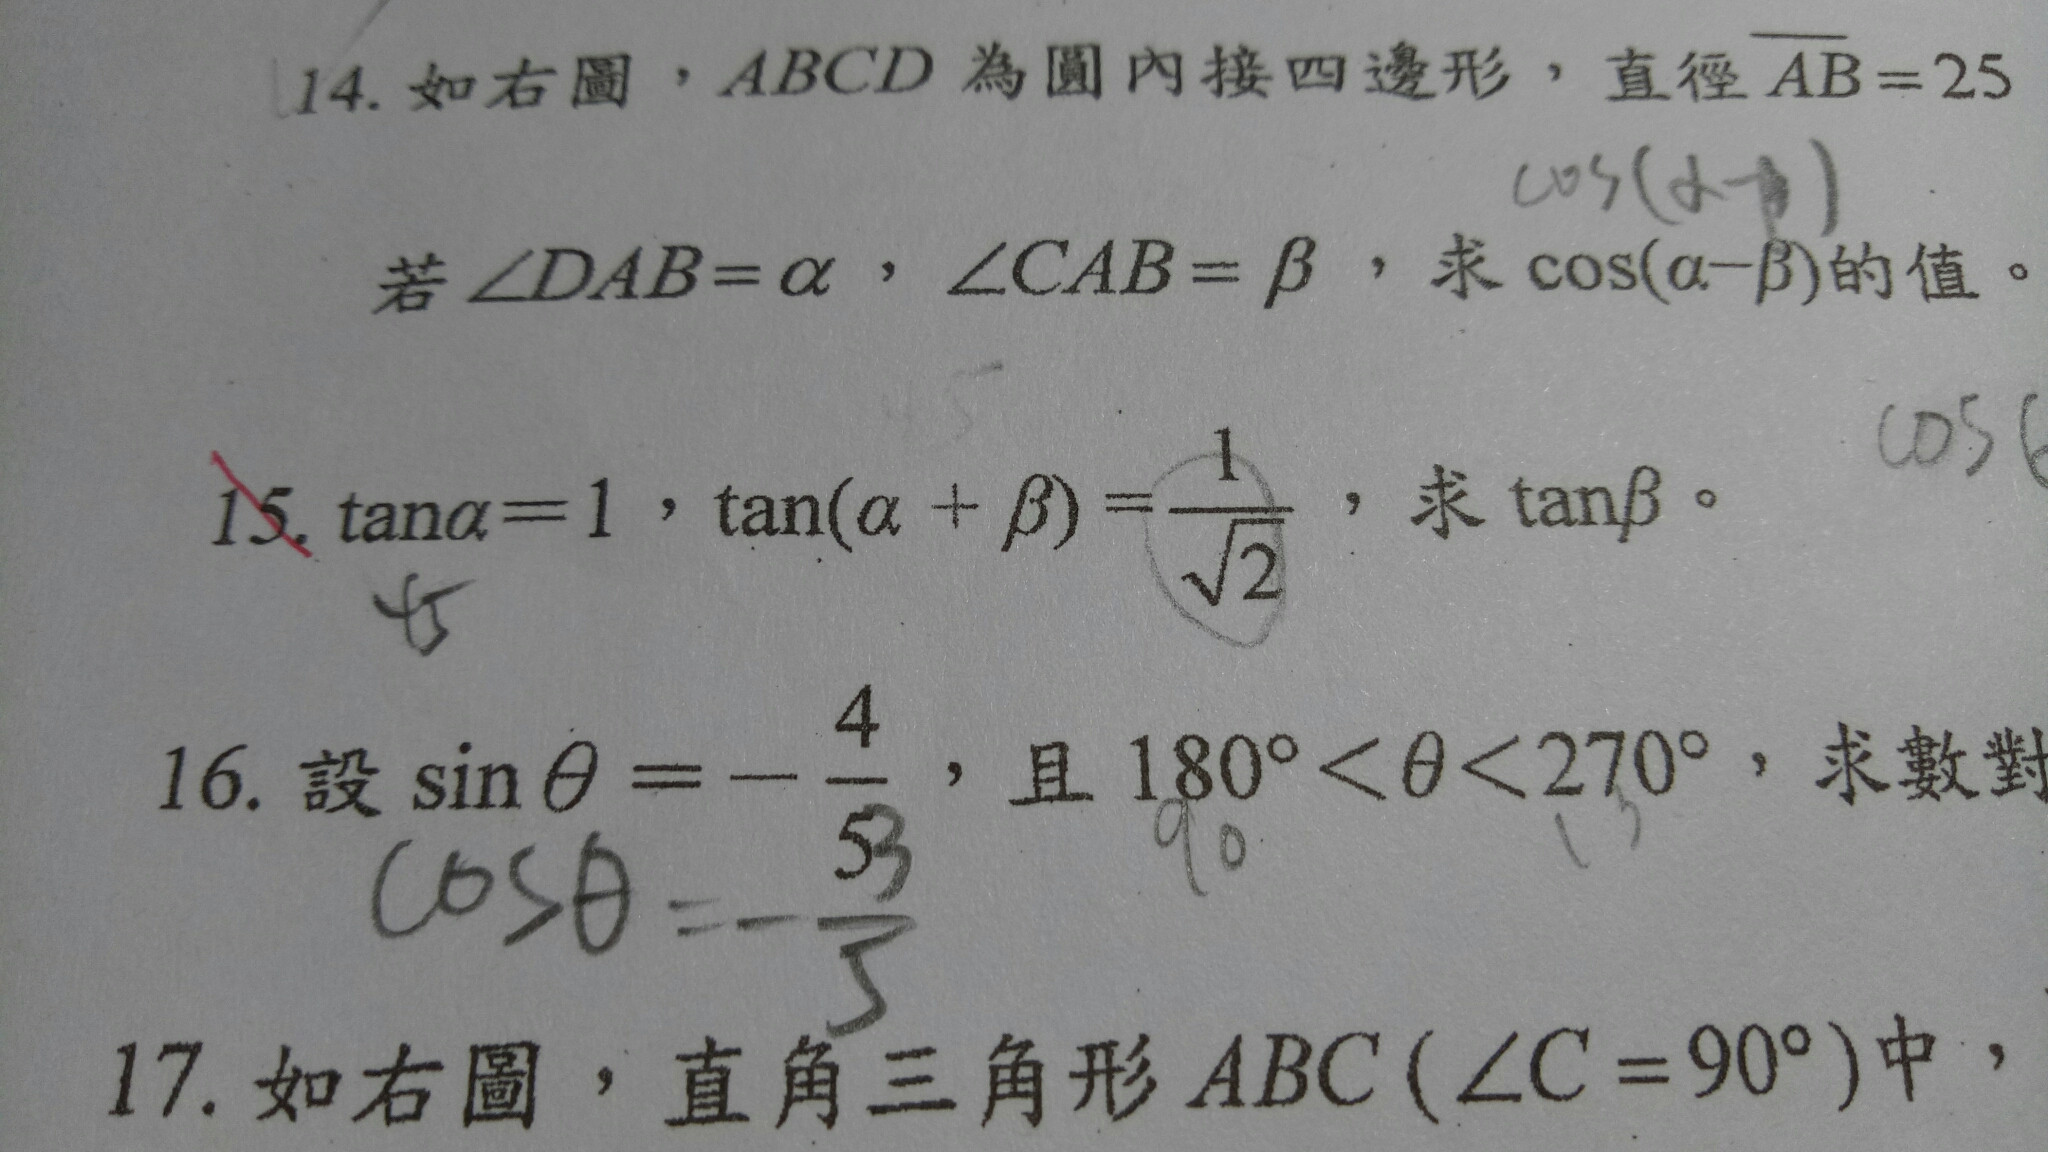 14. 如右圖，ABCD 為圓內接四邊形，直徑 AB = 25
cos(α-β)
若 ∠DAB = α ， ∠CAB = β ，求 cos(α-β)的值。
45
cos
15. tanα = 1 ，tan(α + β) = 1/√2 ，求 tanβ。
45
16. 設 sin θ = - 4/5 ，且 180° < θ < 270° ，求數對
90
cosθ = - 3/5
17. 如右圖，直角三角形 ABC ( ∠C = 90° ) 中，